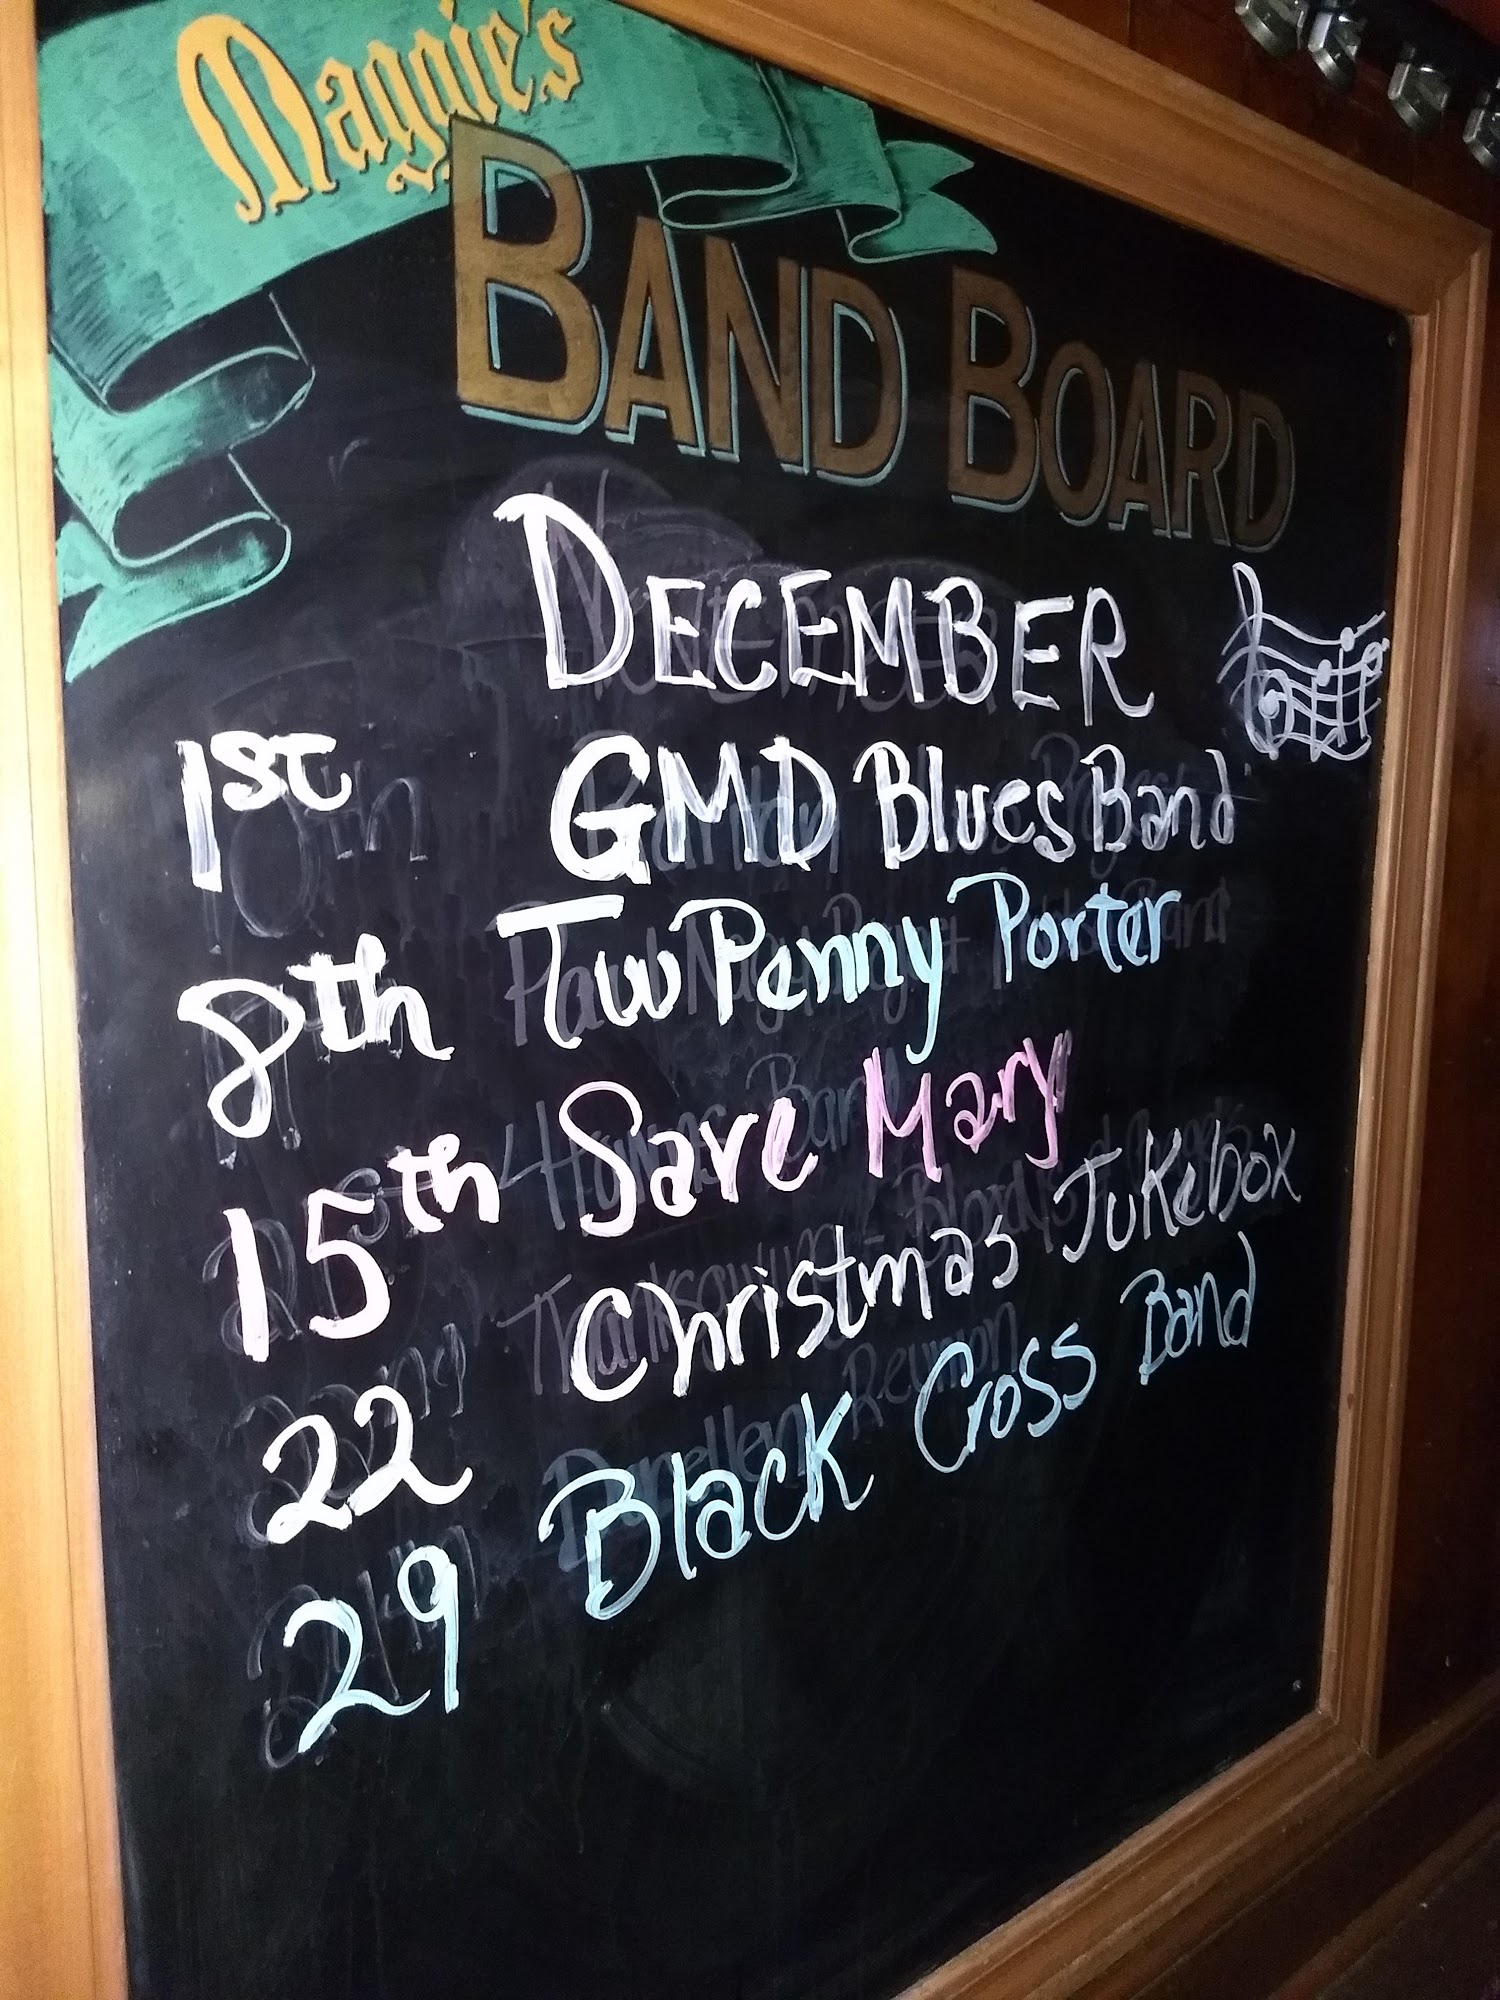 Maggie's
BAND BOARD
DECEMBER
1ST GMD Blues Band
8th Two Penny Porter
15th Save Mary
22 Christmas Jukebox
29 Black Cross Band